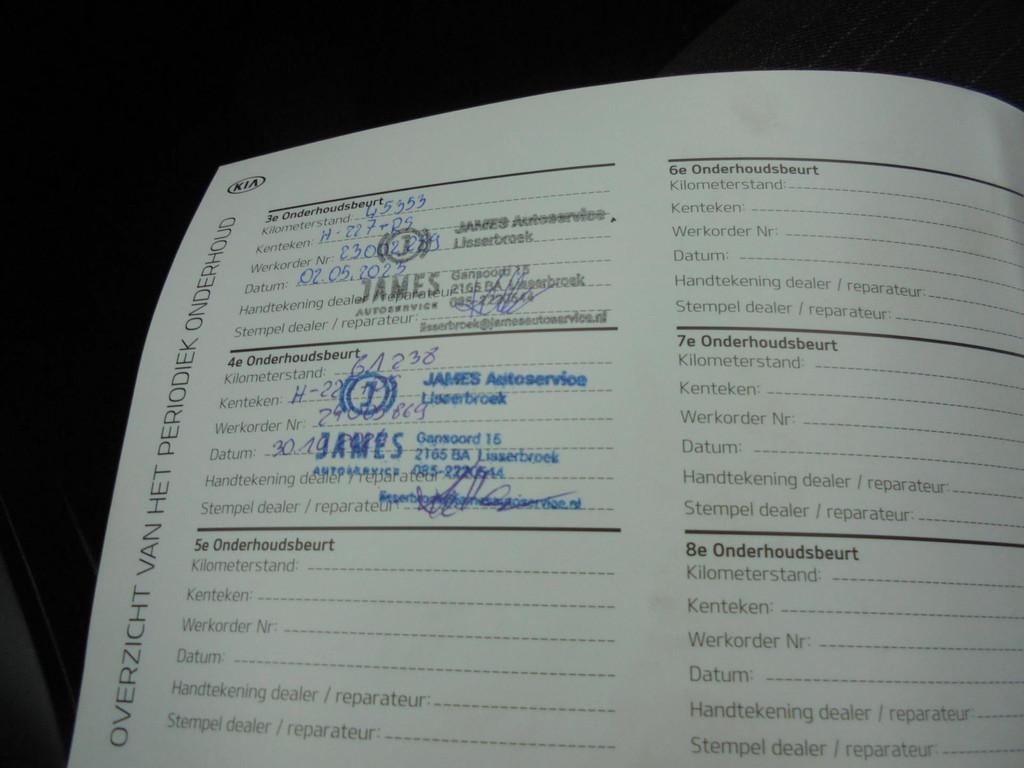 KIA
OVERZICHT VAN HET PERIODIEK ONDERHOUD
3e Onderhoudsbeurt
Kilometerstand: 45353
Kenteken: H-227-RS
Werkorder Nr:
Datum: 02.05.2023
Handtekening dealer / reparateur:
Stempel dealer / reparateur:
JAMES Autoservice
Lisserbroek
JAMES
AUTOSERVICE
Gansoord 15
2165 BA Lisserbroek
085-2220544
lisserbroek@jamesautoservice.nl
4e Onderhoudsbeurt
Kilometerstand: 61238
Kenteken:
Werkorder Nr:
Datum:
Handtekening dealer / reparateur
Stempel dealer / reparateur
JAMES Autoservice
Lisserbroek
JAMES
AUTOSERVICE
Gansoord 15
2165 BA Lisserbroek
085-2220544
5e Onderhoudsbeurt
Kilometerstand:
Kenteken:
Werkorder Nr:
Datum:
Handtekening dealer / reparateur:
Stempel dealer / reparateur:
6e Onderhoudsbeurt
Kilometerstand:
Kenteken:
Werkorder Nr:
Datum:
Handtekening dealer / reparateur:
Stempel dealer / reparateur:
7e Onderhoudsbeurt
Kilometerstand:
Kenteken:
Werkorder Nr:
Datum:
Handtekening dealer / reparateur:
Stempel dealer / reparateur:
8e Onderhoudsbeurt
Kilometerstand:
Kenteken:
Werkorder Nr:
Datum:
Handtekening dealer / reparateur:
Stempel dealer / reparateur: